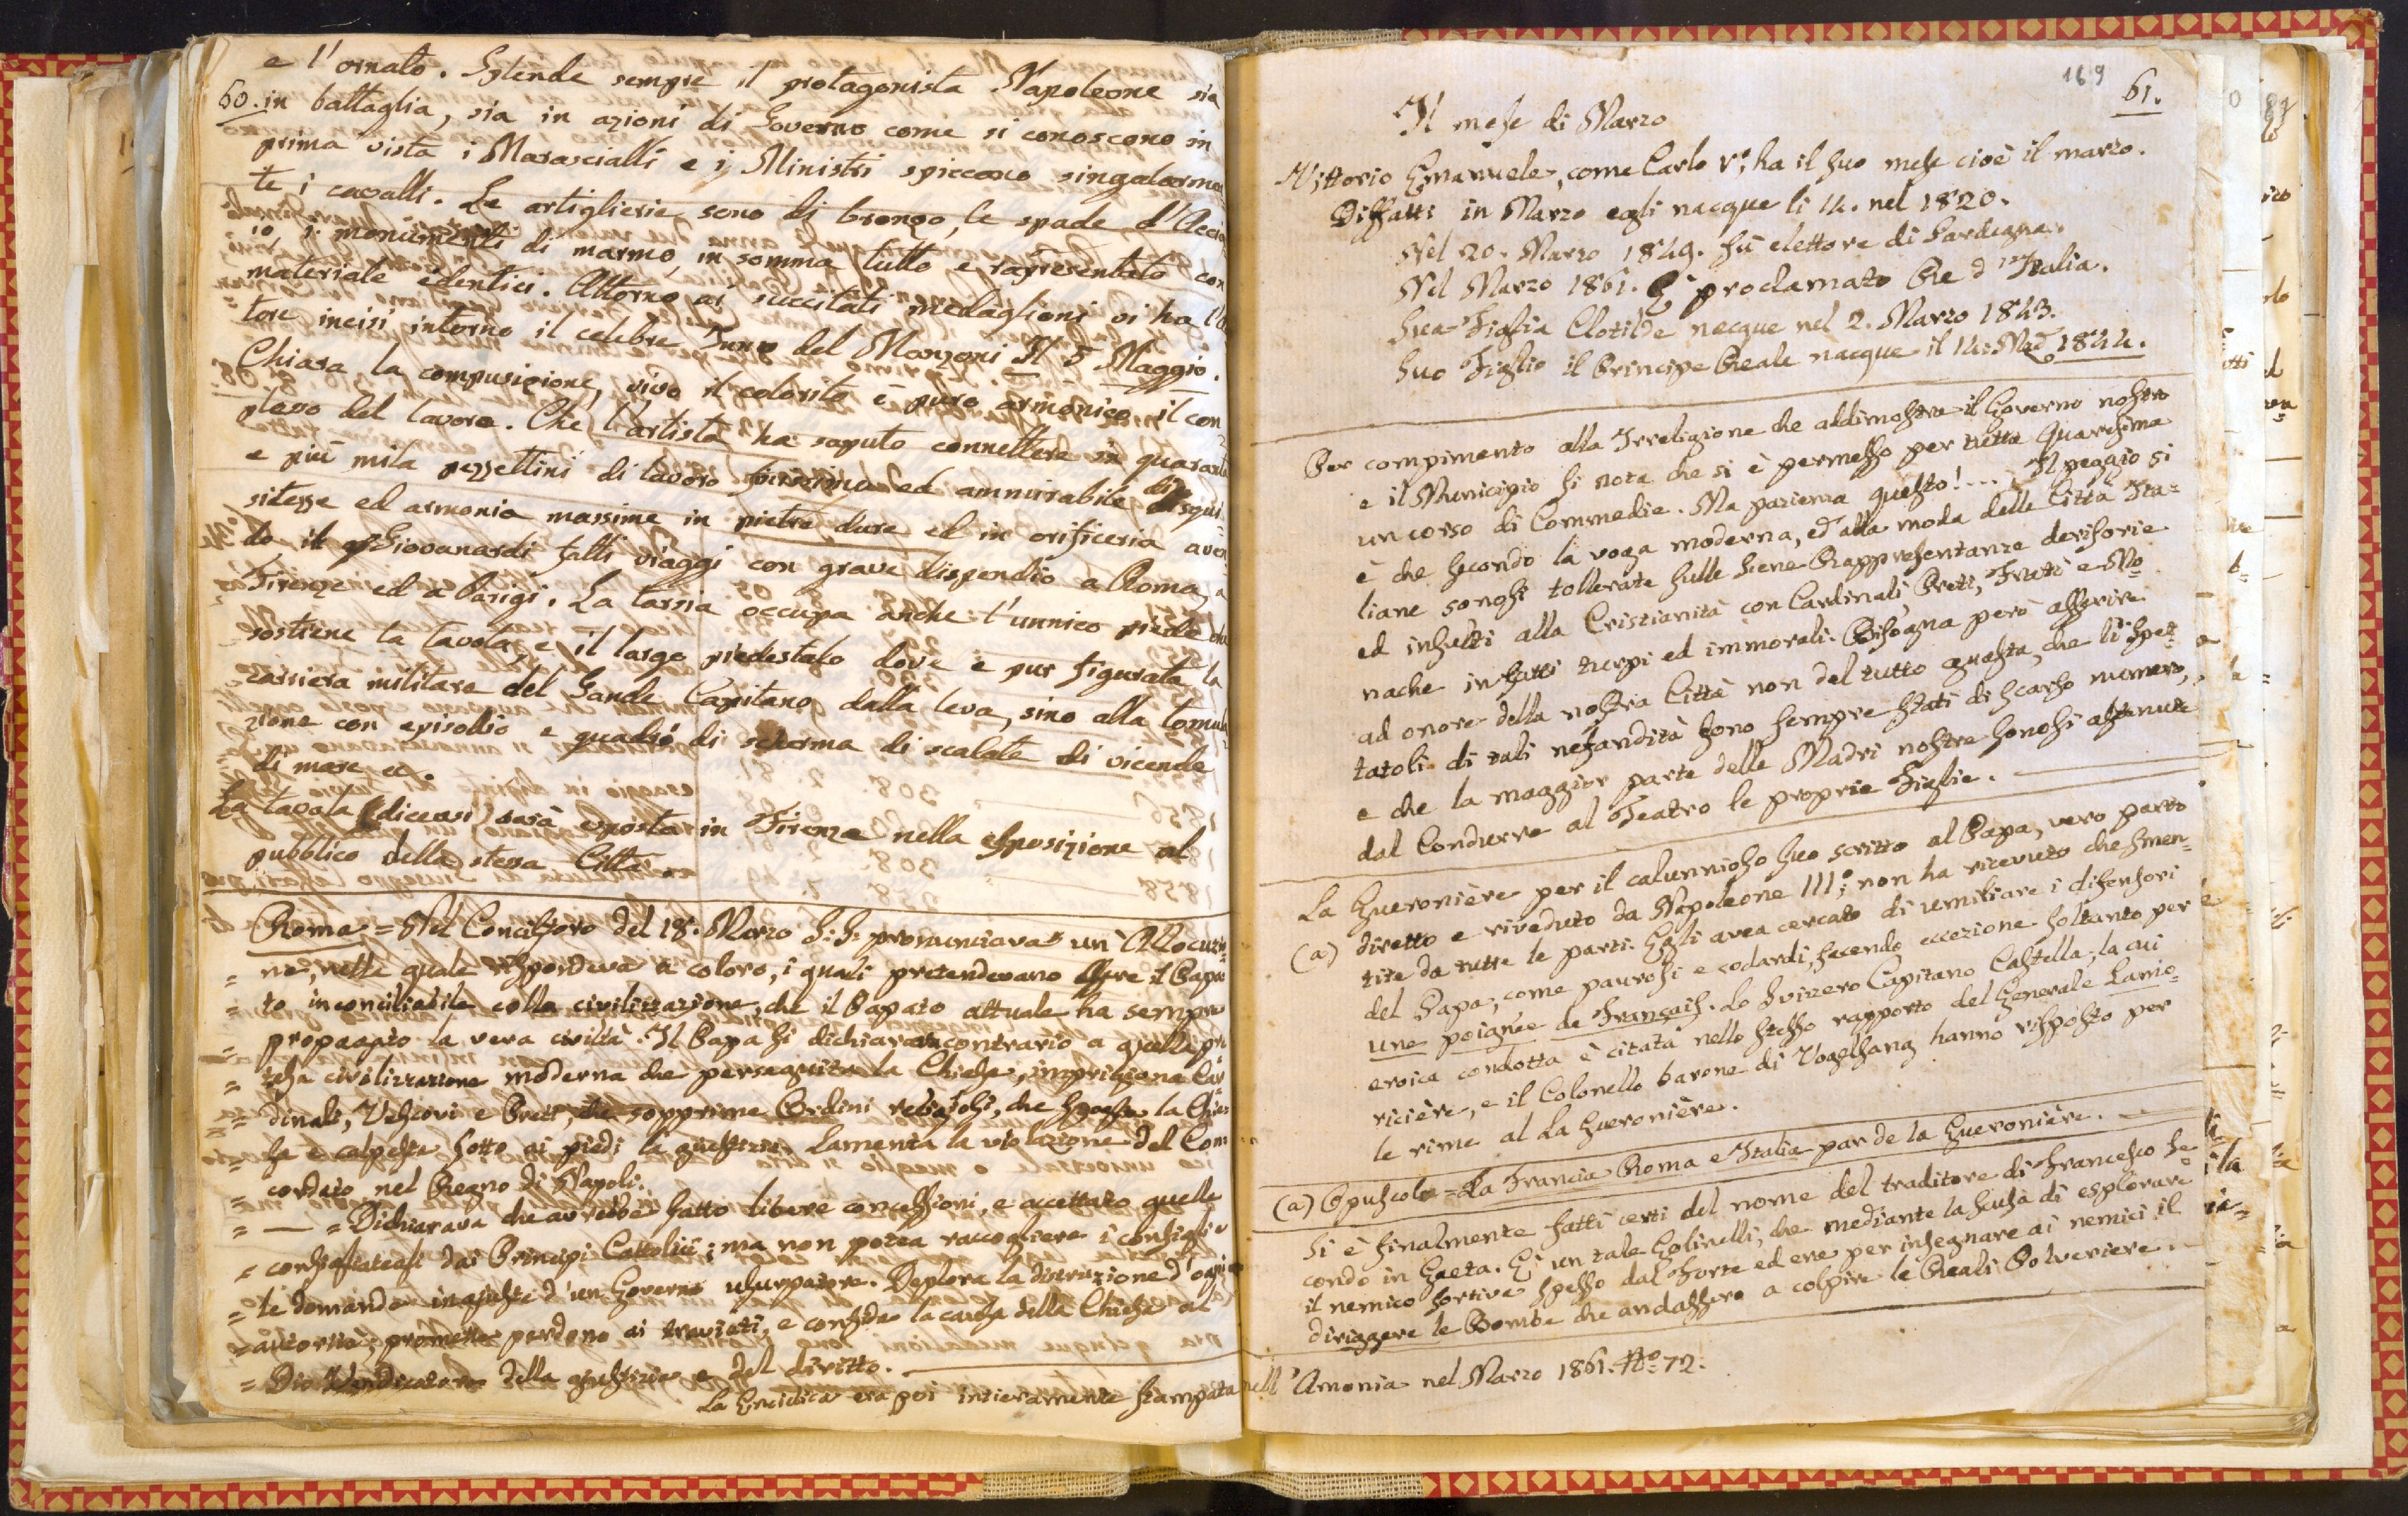 e l'ornato. Splende sempre il protagonista Napoleone sia
60. in battaglia, sia in azioni di Governo come si conoscono in
prima vista i Marascialli e i Ministri spiccono singolarmen
te i cavalli. Le artiglierie sono di bronzo, le spade d'Accia
io, i monumenti di marmo, in somma tutto e rapresentato con
materiale identici. Attorno ai succitati medaglioni vi ha l'Au
tore incisi intorno il celebre Inno del Manzoni Il 5 Maggio.
Chiara la composizione, vivo il colorito è puro armonico il con
plesso del lavoro. Che l'artista ha saputo connettere in quaranta
e più mila pezzettini di lavoro finissimo ed ammirabile di squi=
sitezze ed armonia massime in pietre dure ed in orificeria aven
do il Giovanardi fatti viaggi con grave dispendio a Roma, a
Firenze ed a Parigi. La tarsia occupa anche l'unnico piede che
sostiene la tavola, e il largo piedestalo dove è pur figurata la
carriera militare del Gande Capitano dalla leva, sino alla tomula
zione con episodio e quadro di scherma di scalate di vicende
di mare ec.
La tavola (dicesi) sarà esposta in Firenze nella esposizione al
pubblico della stessa Città.
Roma = Nel Concistoro del 18. Marzo S. S. pronunciava un'Allocuzio
= ne, nella quale rispondeva a coloro, i quali pretendevano essere il Papa
= to inconciliabile colla civilizzazione, che il Papato attuale ha sempre
= propagato la vera civiltà. Il Papa si dichiarava contrario a quella pre
= tesa civilizzazione moderna che perseguita la Chiesa, imprigiona Car
= dinali, Vescovi e Preti, che sopprime Ordini religiosi, che spoglia la Chie
= sa e calpesta sotto ai piedi la giustizia. Lamenta la violazione del Con
= cordato nel Regno di Napoli.
= — = Dichiarava che avrebbe fatto libere concessioni, e accettato quelle
= consigliategli dai Principi Cattolici; ma non potea raccogliere i consigli e
= le domande ingiuste d'un Governo usurpatore. Deplora la distruzione d'ogni
= autorità; promette perdono ai traviati, e confida la causa della Chiesa al
= Dio Vendicatore della giustizia e del diritto.
La Enciclica era poi intieramente stampata nell'Amonia nel Marzo 1861. No. 72.
169
61.
Il mese di Marzo
Vittorio Emanuele, come Carlo Vo; ha il suo mese cioè il marzo.
Diffatti in Marzo egli nacque li 14. nel 1820.
Nel 20. Marzo 1849. fù elettore di Sardegna.
Nel Marzo 1861. È proclamato Re d'Italia.
Sua Figlia Clotilde nacque nel 2. Marzo 1843.
Suo Figlio il Principe Reale nacque il 14: Mad 1844.
Per compimento alla Irreligione che addimostra il Governo nostro
e il Municipio si nota che si è permesso per tutta Quaresima
un corso di Commedie. Ma pazienza questo!... Il peggio si
è che secondo la voga moderna, ed alla moda delle Città Ita=
liane sonosi tollerate sulle Scene Rappresentanze derisorie
ed insulti alla Cristianità con Cardinali Preti, Frati e Mo
nache in fatti turpi ed immorali. Bisogna però asserire
ad onore della nostra Città non del tutto guasta, che li spet=
tatoli di tali nefandità sono sempre stati di scarso numero,
e che la maggior parte delle Madri nostre sonosi astenute
dal Condurre al Teatro le proprie Figlie.
La Gueronière per il calunnioso suo scritto al Papa, vero parto
(a) diretto e riveduto da Napoleone III; non ha ricevuto che smen=
tite da tutte le parti. Egli avea cercato di umiliare i difensori
del Papa, come paurosi e codardi, facendo eccezione soltanto per
une poignée de Français. Lo Svizzero Capitano Castella, la cui
eroica condotta è citata nello stesso rapporto del Generale Lamo=
ricière, e il Colonello barone di Vogelsang hanno risposto per
le rime al La Gueronière.
(a) Opuscolo = La Francia Roma e Italia par de la Gueronière.
Si è finalmente fatti certi del nome del traditore di Francesco Se=
condo in Gaeta. È un tale Golinelli, che mediante la scusa di esplorare
il nemico sortiva spesso dal Forte ed era per insegnare ai nemici il
diriggere le Bombe che andassero a colpire le Reali Polveriere.